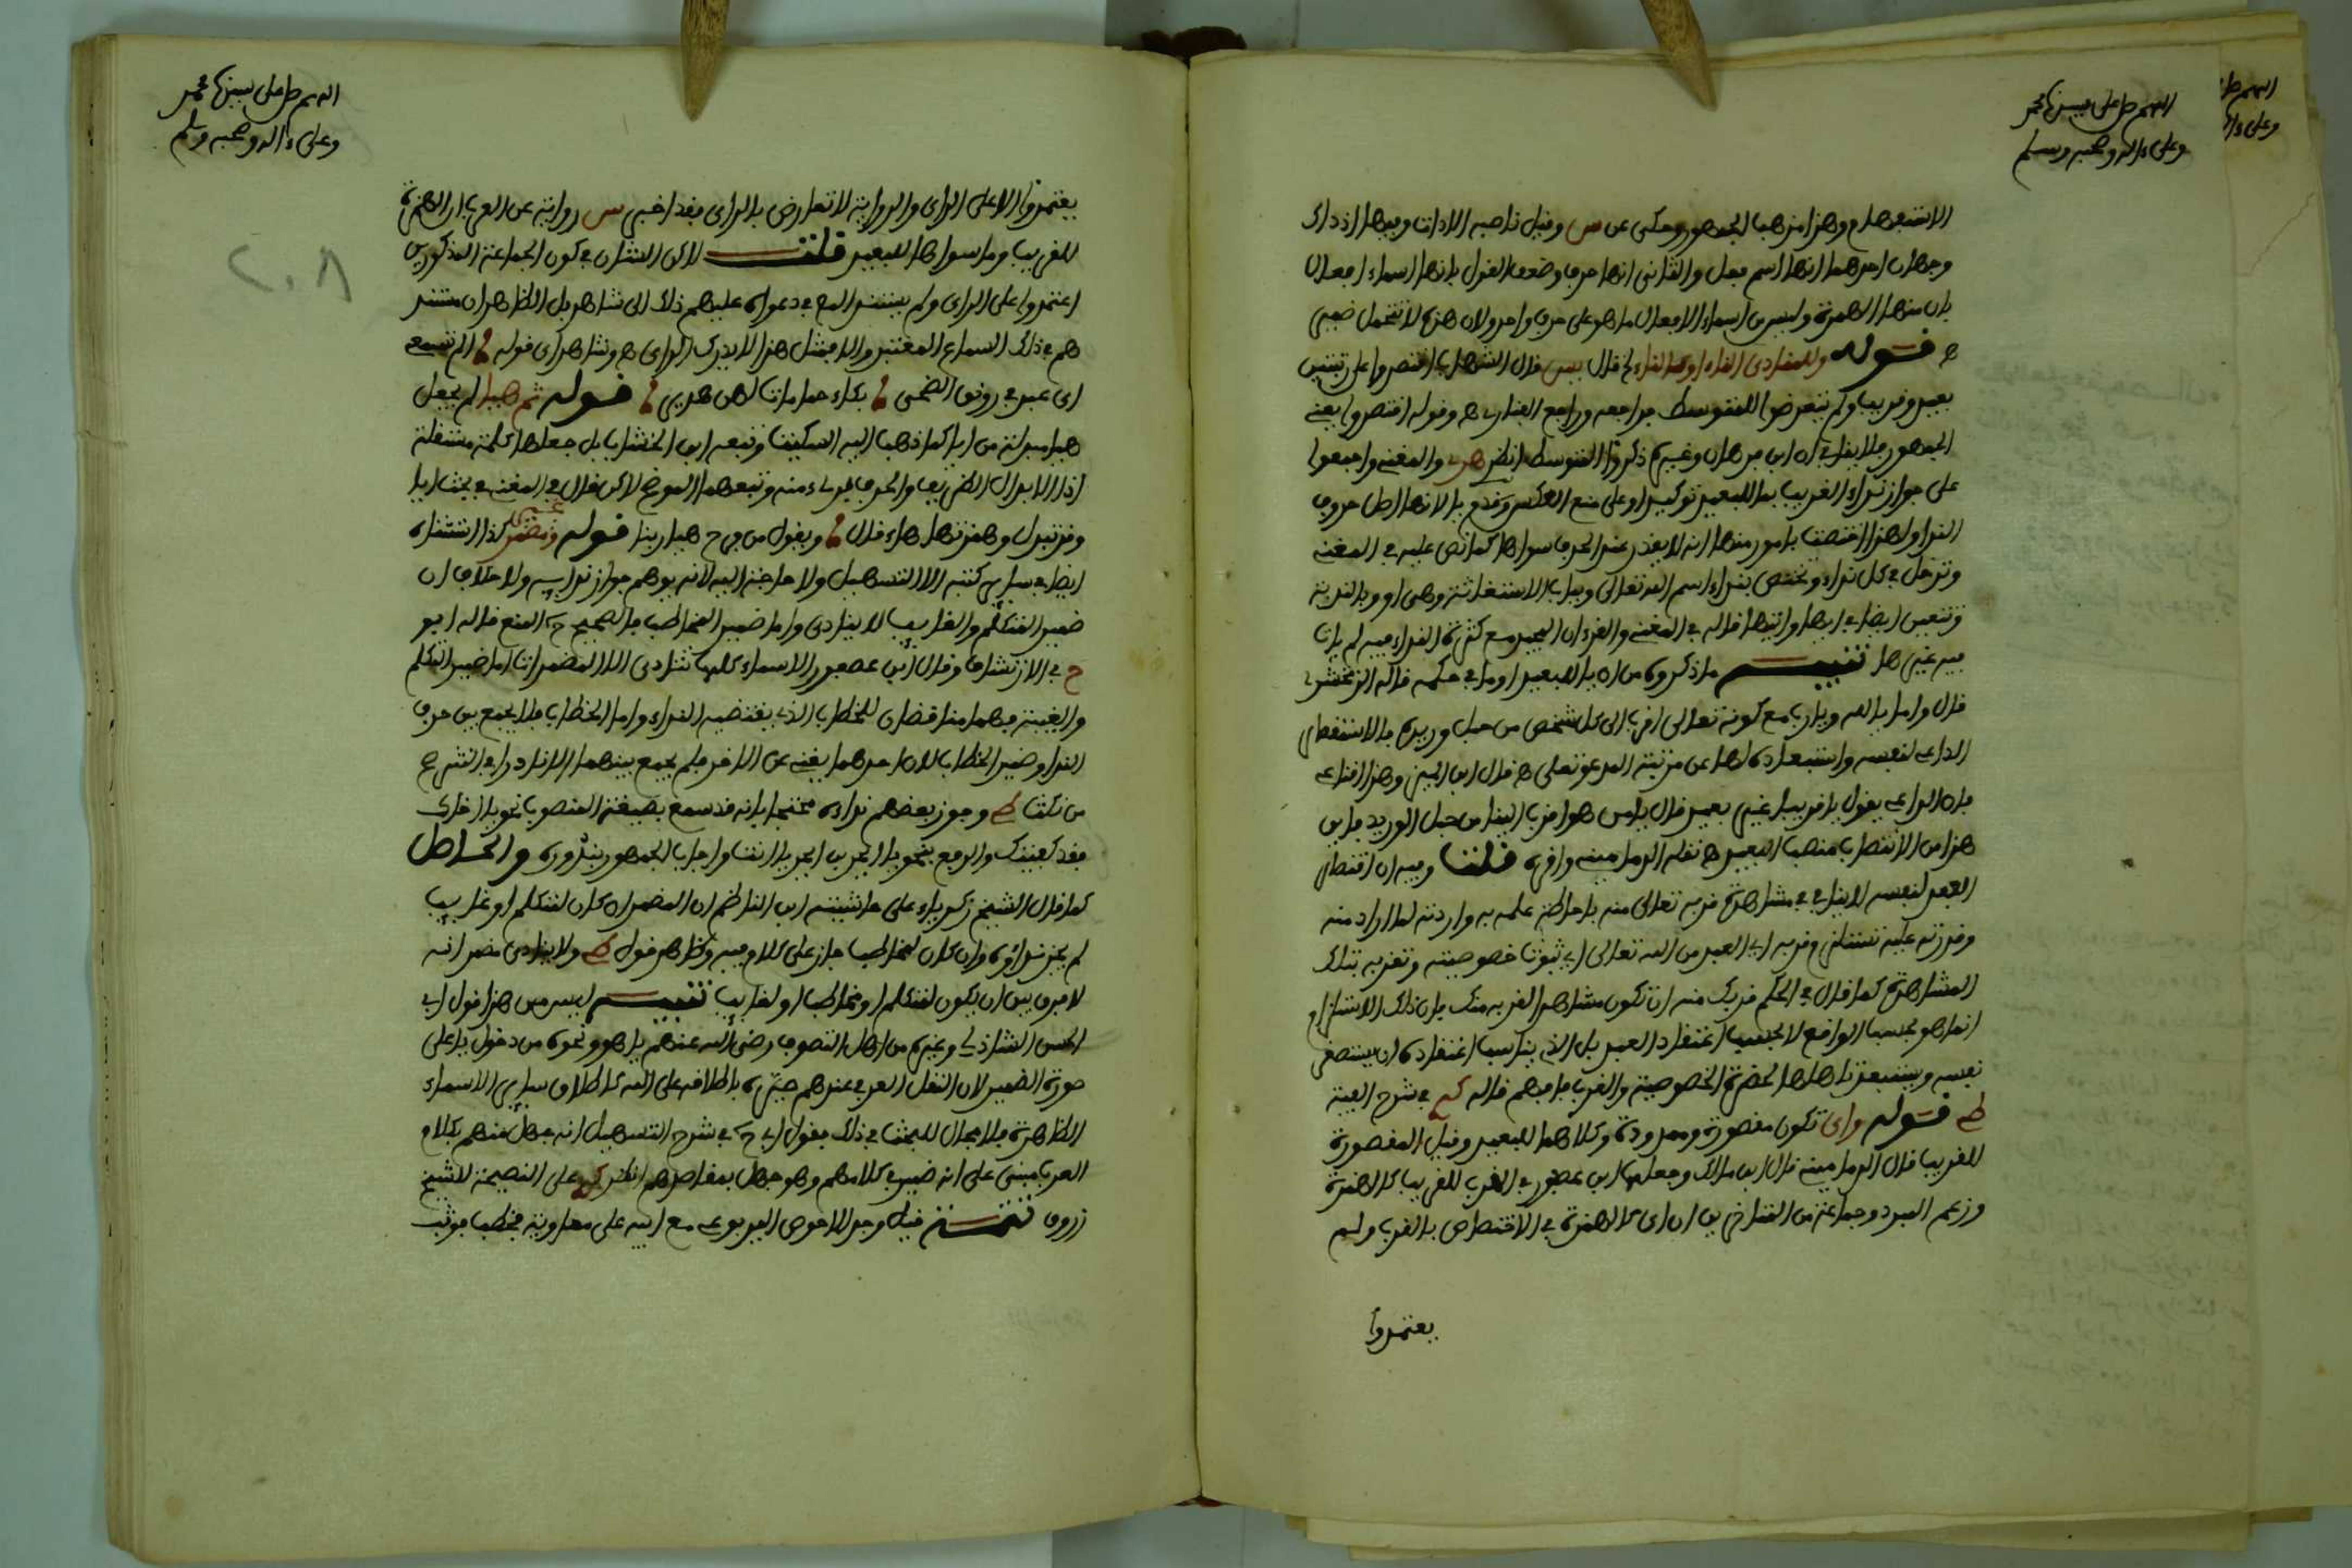 اللهم صل على سيدنا محمد
وعلى ءاله وصحبه وسلم
الاستفهام وهذا مذهب الجمهور وحكى عن س وقيل ناصبه الادات وفيها اذ ذاك
وجهان احدهما انها اسم فعل والثاني انها حرف وضعف القول بانها اسماء افعال
بان منها الهمزة وليس من اسماء الافعال ما هو على حرف واحد ولان هذه لا تتحمل ضمير
ه قوله وللمنادى الناء او كالناء قال يس قال الشهاب اقتصروا على تبيين
بعيد وقريب ولم يتعرضوا للمتوسط فراجعه وراجع العبارى ه وقوله اقتصروا يعني
الجمهور فلا ينافي ان ابن برهان وغيره ذكروا المتوسط انظر والمغنى واجمعوا
على جواز نداء القريب بما للبعيد توكيدا وعلى منع العكس وقدم يا لانها اصل حروف
الندا ولهذا اختصت بامور منها انه لا يقدر عند الحذف سواها كما نص عليه في المغنى
وتدخل في كل نداء وتختص بنداء اسم الله تعالى وبباب الاستغاثة وهي او وا بالندبة
وتتعين ايضا في ايها وايتها قاله في المغنى والقرءان المجيد مع كثرة النداء فيه لم يات
فيه غيرها تنبيه ما ذكروه من ان يا للبعيد او ما في حكمه قاله الزمخشري
قال واما يا الله ويارب مع كونه تعالى اقرب الى كل شخص من حبل وريده فالاستقصار
الداعي لنفسه واستبعاده لها عن مرتبة المدعو تعالى ه قال ابن المنير وهذا اقناعي
فان الداعي يقول يا قريبا غير بعيد قال يا من هو اقرب الينا من حبل الوريد فاين
هذا من الانتصاب منصب البعيد ه نقله الدماميني واقره قلت وفيه ان اقتصار
العبد لنفسه لا ينافي مشاهدة قربه تعالى منه باحاطة علمه به وارادته لما اراد منه
وقدرته عليه تستلزم قربه اي العبد من الله تعالى اي ثبوت خصوصيته وتقريبه بتلك
المشاهدة كما قال في الحكم قربك منه ان تكون مشاهدا لقربه منك فان ذلك الاستلزام
انما هو بحسب الواقع لا بحسب اعتقاد العبد بل الذي يناسب اعتقاده ان يستصغر
نفسه ويستبعد تاهلها لحضرة الخصوصية والقرب فافهم قاله في شرح الفية
ط قوله واى تكون مقصورة وممدودة وكلاهما للبعيد وقيل المقصورة
للقريب قال الدماميني قال ابن مالك وجعلها ابن عصفور في المقرب للقريب كالهمزة
وزعم المبرد وجماعة من المتاخرين ان اى كالهمزة في الاختصاص بالقرب ولم
يعتمدوا
اللهم صل على سيدنا محمد
وعلى ءاله وصحبه وسلم
٢٠٨
يعتمدوا الا على الراى والرواية لا تعارض بالراى فقد اخبر س رواية عن العرب ان الهمزة
للقريب وما سواها للبعيد قلت لاكن الشان في كون الجماعة المذكورين
اعتمدوا على الراى ولم يستند المع في دعواه عليهم ذلك الى شاهد بل الظاهر ان مستند
هم في ذلك السماع المعتبر والا فمثل هذا لا يدرك بالراى ه وشاهد اى قوله الم تسمعي
اى عبد في رونق الضحى بكاء حمامات لهن هدير قوله ثم هيا لم يجعل
هيا مبدلة من ايا كما ذهب اليه ابن السكيت وتبعه ابن الخشاب بل جعلها كلمة مستقلة
اذ الابدال والحرف بريء منه وتبعهما الموضح لاكن قال في المغنى في بحث ايا
وقد تبدل وهمزتها هاء قال ويقول من فرح هيا ربنا قوله وغير مضمر كذا استثناه
ايضا في سائر كتبه الا التسهيل ولا حاجة اليه لانه يوهم جواز ندائه ولا خلاف ان
ضمير المتكلم والغائب لا ينادى واما ضمير المخاطب فالصحيح المنع قاله ابو
ح في الارتشاف وقال ابن عصفور الاسماء كلها تنادى الا المضمرات اما ضمير المتكلم
والغيبة فهما مناقضان للخطاب الذي يقتضيه النداء واما الخطاب فلا يجمع بين حرف
الندا وضمير الخطاب لان احدهما يغني عن الاخر فلم يجمع بينهما الا نادرا في الشرح
من نكت ط وجوز بعضهم نداءه محتجا بانه قد سمع بصيغة المنصوب نحو يا اياك
قد كفيتك والرفع نحو يا ابجر بن ابجر يا انتا واجاب الجمهور بشذوذه والحاصل
كما قال الشيخ زكرياء على حاشيته ابن الناظم ان المضمر ان كان لمتكلم او غايب
لم يجز نداؤه وان كان لمخاطب جاز على كلام فيه وظاهر قول ط ولا ينادى مضمر انه
لا فرق بين ان يكون لمتكلم او مخاطب او لغايب تنبيه ليس من هذا قول ابي
الحسن الشاذلي وغيره من اهل التصوف رضي الله عنهم يا هو ونحوه من دخول يا على
صورة الضمير لان النقل العرفي عندهم صيره باطلاقه على الله كاطلاق سائر الاسماء
الظاهرة فلا مجال للبحث في ذلك فقول ابي ح في شرح التسهيل انه جهل منهم بكلام
العرب مبني على انه ضمير في كلامهم وهو جهل بمقاصدهم انظر على النصيحة للشيخ
زروق تتمة قيل وجد الاحوص اليربوعي مع ابيه على معاوية فخطب فوثب